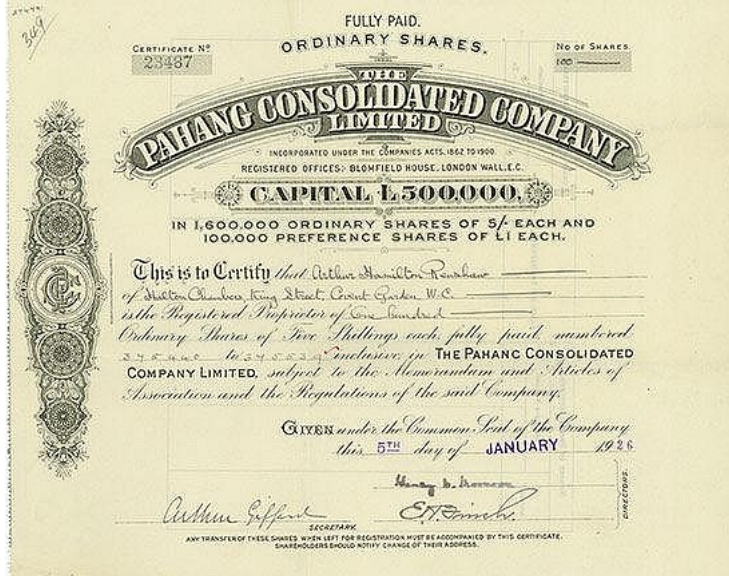 349
FULLY PAID.
ORDINARY SHARES.
CERTIFICATE Nº
23487
NO OF SHARES.
100
THE
PAHANG CONSOLIDATED COMPANY
LIMITED
INCORPORATED UNDER THE COMPANIES ACTS, 1862 TO 1900.
REGISTERED OFFICES:- BLOMFIELD HOUSE, LONDON WALL, E.C.
CAPITAL £500,000,
IN 1,600,000 ORDINARY SHARES OF 5/- EACH AND
100,000 PREFERENCE SHARES OF £1 EACH.
This is to Certify that Arthur Hamilton Renshaw
of Hilton Chambers King Street, Covent Garden W.C.
is the Registered Proprietor of One hundred
Ordinary Shares of Five Shillings each, fully paid, numbered
375440 to 375539 inclusive, in THE PAHANG CONSOLIDATED
COMPANY LIMITED, subject to the Memorandum and Articles of
Association and the Regulations of the said Company.
GIVEN under the Common Seal of the Company
this 5TH day of JANUARY 1926
Henry
Arthur Gifford
SECRETARY.
DIRECTORS.
ANY TRANSFER OF THESE SHARES WHEN LEFT FOR REGISTRATION MUST BE ACCOMPANIED BY THIS CERTIFICATE.
SHAREHOLDERS SHOULD NOTIFY CHANGE OF THEIR ADDRESS.